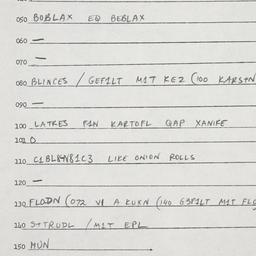 050 BOBLAX EQ BEBLAX
060 —
070 —
080 BLINCES / GEFILT MIT KEZ (100 KARSTN
090 —
100 LATKES FAN KARTOFL QAP XANIKE
101 0
110 LIKE ONION ROLLS
120 —
130 FLODN (072 VI A KUKN (140 GEFILT MIT FLO
140 STRUDL / MIT EPL
150 MUN